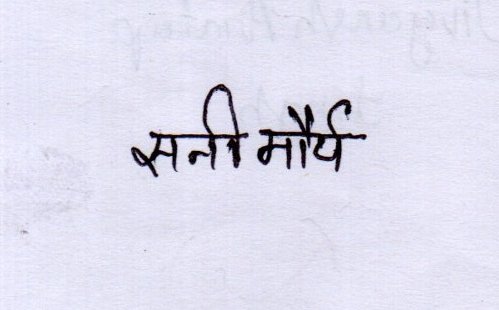 सनी मौर्य